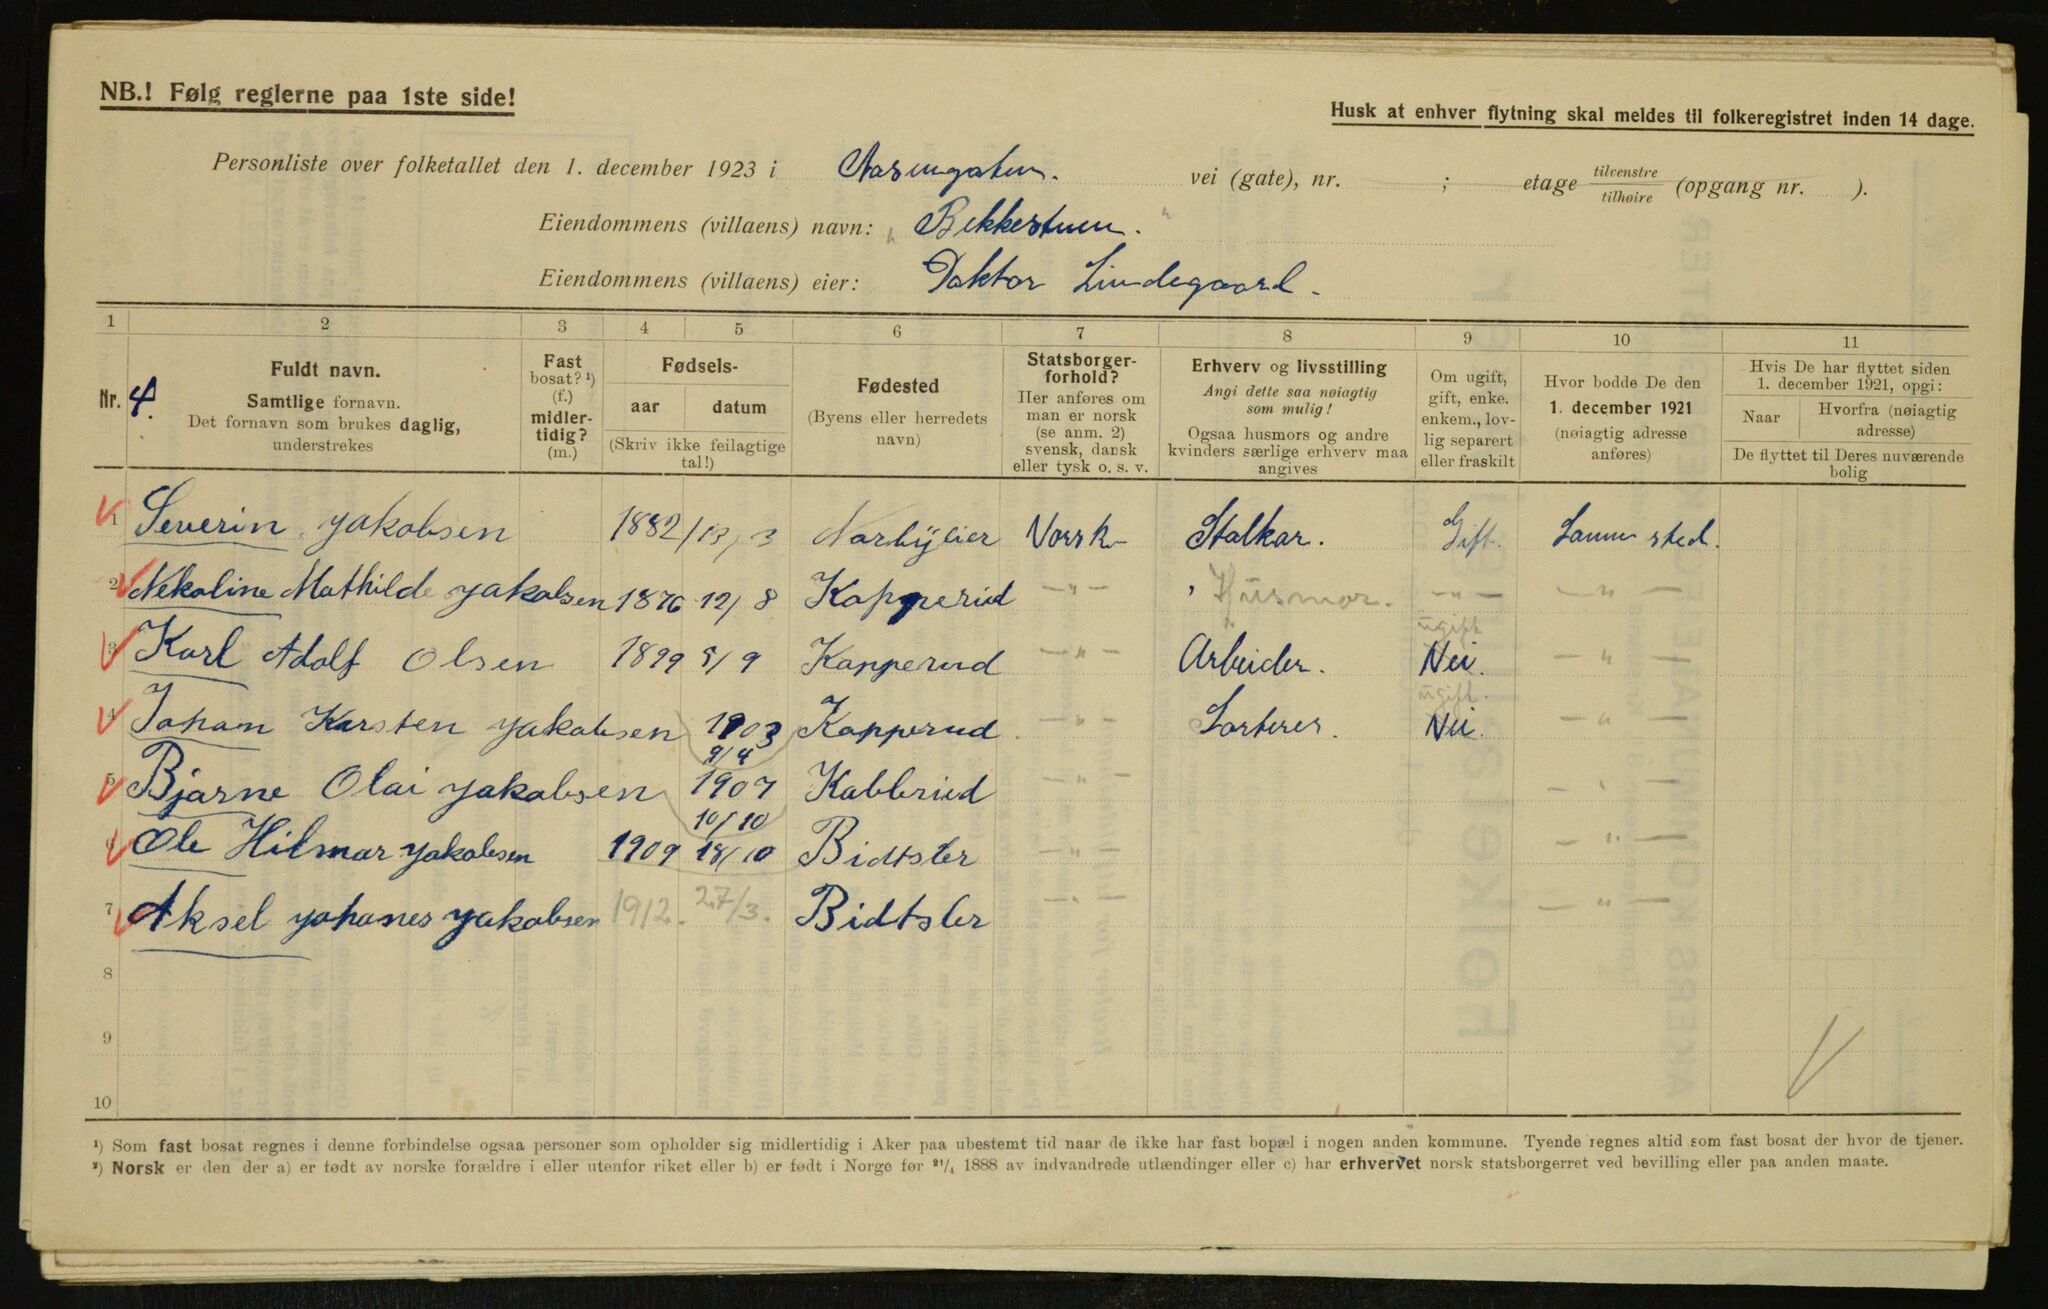 NB.! Følg reglerne paa 1ste side!
Husk at enhver flytning skal meldes til folkeregistret inden 14 dage.
Personliste over folketallet den 1. december 1923 i Aasengaten. vei (gate), nr. ; etage tilvenstre/tilhøire (opgang nr. ).
Eiendommens (villaens) navn: " Bekkestuen. "
Eiendommens (villaens) eier: Doktor Lindegaard.
1 2 3 4 5 6 7 8 9 10 11
Nr. 4.
Fuldt navn.
Samtlige fornavn.
Det fornavn som brukes daglig,
understrekes
Fast
bosat? ¹)
(f.)
midler-
tidig?
(m.)
Fødsels-
aar datum
(Skriv ikke feilagtige
tal!)
Fødested
(Byens eller herredets
navn)
Statsborger-
forhold?
Her anføres om
man er norsk
(se anm. 2)
svensk, dansk
eller tysk o. s. v.
Erhverv og livsstilling
Angi dette saa nøiagtig
som mulig!
Ogsaa husmors og andre
kvinders særlige erhverv maa
angives
Om ugift,
gift, enke.
enkem., lov-
lig separert
eller fraskilt
Hvor bodde De den
1. december 1921
(nøiagtig adresse
anføres)
Hvis De har flyttet siden
1. december 1921, opgi:
Naar Hvorfra (nøiagtig
adresse)
De flyttet til Deres nuværende
bolig
1 Severin Yakobsen 1882 /13/3 Norsk Stalkar. Gift. Samme sted.
2 Nekoline Mathilde Yakobsen 1876 12/8 Kapperud -"- Husmor. -"- -"-
3 Karl Adolf Olsen 1899 5/9 Kapperud -"- Arbeider. ugift Nei. -"-
4 Johan Karsten Yakobsen 1903 9/4 Kapperud -"- Sorterer. ugift. Nei. -"-
5 Bjarne Olai Yakobsen 1907 10/10 Kabberud -"- -"-
6 Ole Hilmar Yakobsen 1909 18/10 Bidtsler -"- -"-
7 Aksel Yohanes Yakobsen 1912. 27/3. Bidtsler -"- -"-
8
9
10
¹) Som fast bosat regnes i denne forbindelse ogsaa personer som opholder sig midlertidig i Aker paa ubestemt tid naar de ikke har fast bopæl i nogen anden kommune. Tyende regnes altid som fast bosat der hvor de tjener.
²) Norsk er den der a) er født av norske forældre i eller utenfor riket eller b) er født i Norge før ²¹/₄ 1888 av indvandrede utlændinger eller c) har erhvervet norsk statsborgerret ved bevilling eller paa anden maate.